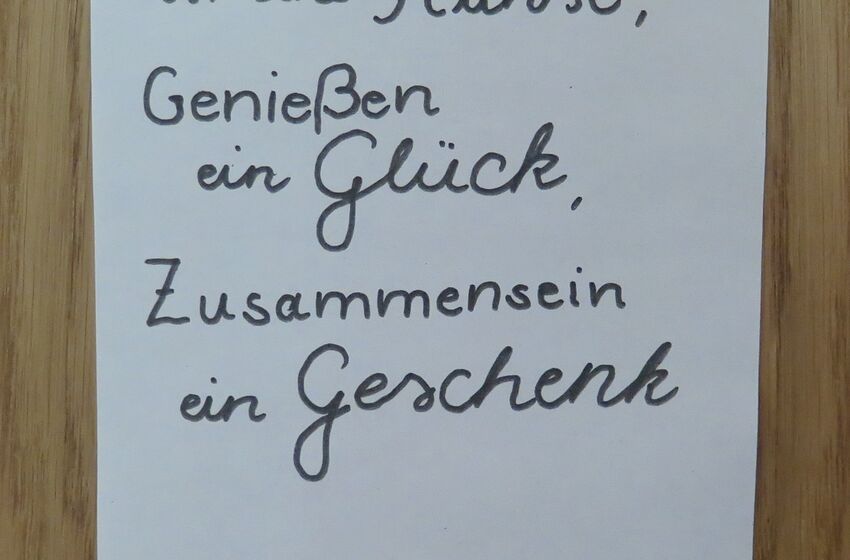 Genießen
ein Glück,
Zusammensein
ein Geschenk